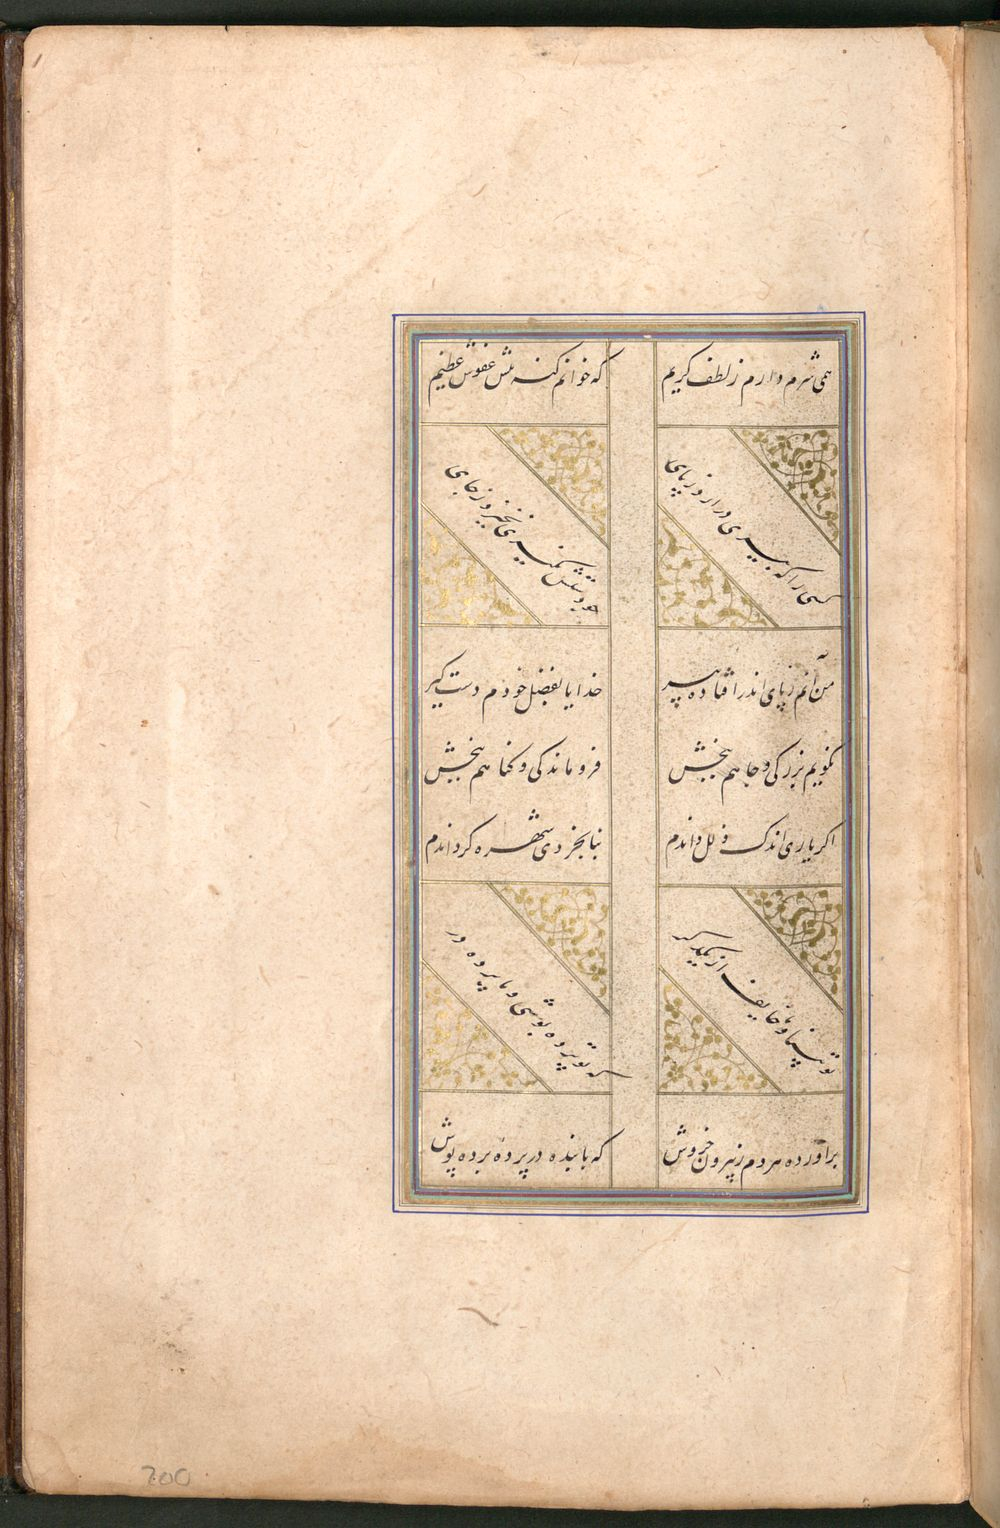 همی شرم دارم ز لطف کریم
که خوانم کنه پیش عفوش عظیم
کسی را که پیری درارد ز پای
چو دستش نکیری نخیزد ز جای
من آنم ز پای اندر افتاده پیر
خدایا بفضل خودم دست کیر
نکویم بزرکی و جاهم ببخش
فروماندکی و کناهم ببخش
اکر یاری اندک زلل داندم
بنابخردی شهره کرداندم
تو بینا و ما خایف از یکدکر
که تو پرده پوشی و ما پرده در
براورده مردم ز بیرون خروش
که با بنده در پرده و پرده پوش
200